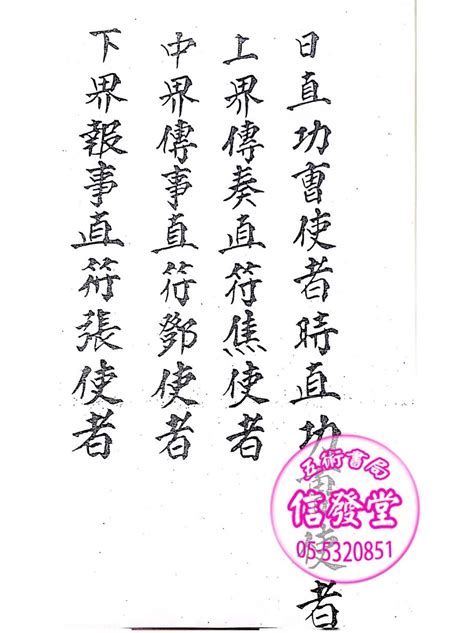 日直功曹使者時直功曹使者
上界傳奏直符焦使者
中界傳事直符鄧使者
下界報事直符張使者
五術書局
信發堂
05-5320851